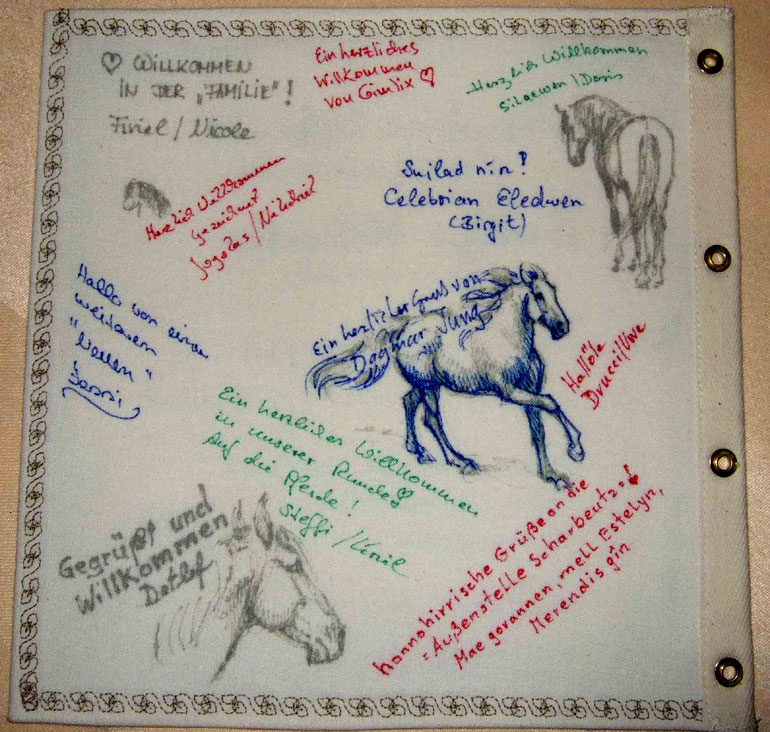 ♡ WILLKOMMEN
IN DER „FAMILIE"!
Firiel / Nicole
Ein herzliches
Willkommen
von Gimlix ♡
Herzlich Willkommen
Silaewen / Doris
Herzlich Willkommen
gezeichnet
Suilad nin!
Celebrian Eledwen
(Birgit)
Hallo von einem
weiteren
"Neuen"
Ein herzlicher Gruß von
Dagmar Jung
Hallöle
Ein herzliches Willkommen
in unserer Runde ♡
Auf die Pferde!
Steffi /
Gegrüßt und
Willkommen
Detlef
hannohirrische Grüße an die
"Außenstelle Scharbeutz"!
Mae govannen, mell Estelyn,
Merendis gîn